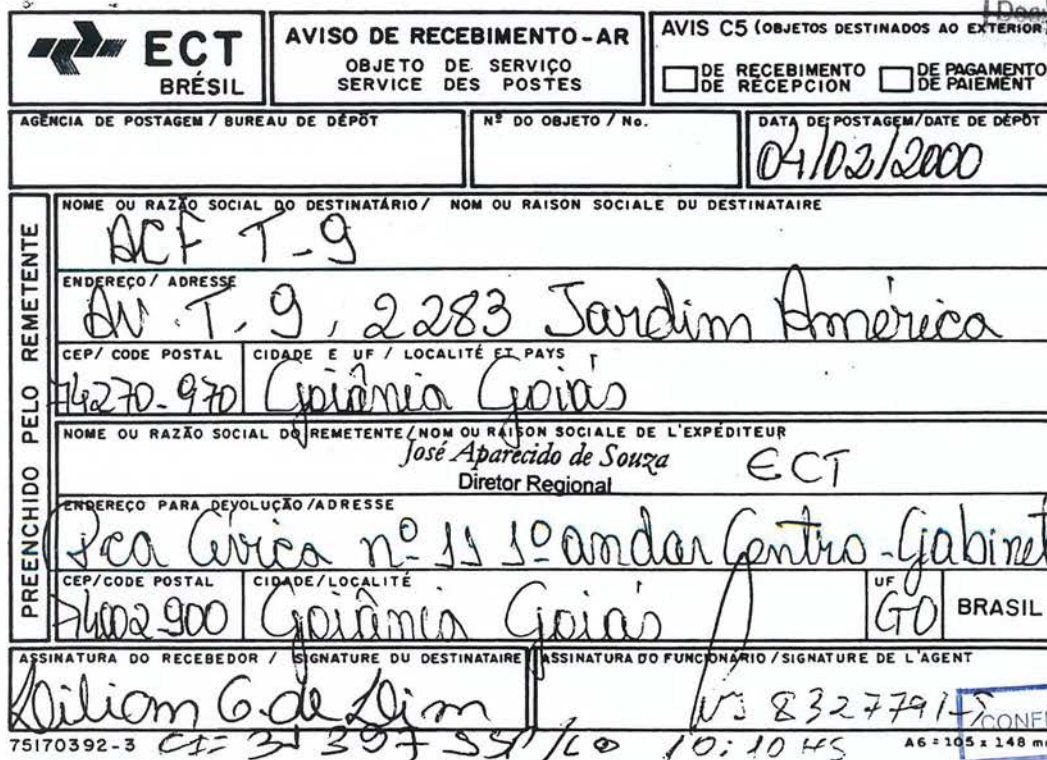 ECT
BRÉSIL
AVISO DE RECEBIMENTO-AR
OBJETO DE SERVIÇO
SERVICE DES POSTES
AVIS C5 (OBJETOS DESTINADOS AO EXTERIOR)
DE RECEBIMENTO
DE RÉCEPCION
DE PAGAMENTO
DE PAIEMENT
AGÊNCIA DE POSTAGEM / BUREAU DE DÉPÔT
Nº DO OBJETO / No.
DATA DE POSTAGEM/DATE DE DÉPÔT
04/02/2000
PREENCHIDO PELO REMETENTE
NOME OU RAZÃO SOCIAL DO DESTINATÁRIO / NOM OU RAISON SOCIALE DU DESTINATAIRE
ACF T-9
ENDEREÇO / ADRESSE
AV. T. 9, 2283 Jardim América
CEP / CODE POSTAL
74270-970
CIDADE E UF / LOCALITÉ ET PAYS
Goiânia Goiás
NOME OU RAZÃO SOCIAL DO REMETENTE / NOM OU RAISON SOCIALE DE L'EXPÉDITEUR
José Aparecido de Souza
Diretor Regional
ECT
ENDEREÇO PARA DEVOLUÇÃO /ADRESSE
Pca Cívica nº 11 1º andar Centro - Gabinet
CEP/CODE POSTAL
74002900
CIDADE/LOCALITÉ
Goiânia Goiás
UF
GO
BRASIL
ASSINATURA DO RECEBEDOR / SIGNATURE DU DESTINATAIRE
ASSINATURA DO FUNCIONÁRIO / SIGNATURE DE L'AGENT
G. de
CONFE
75170392-3
10:10 HS
A6 = 105 x 148 mm